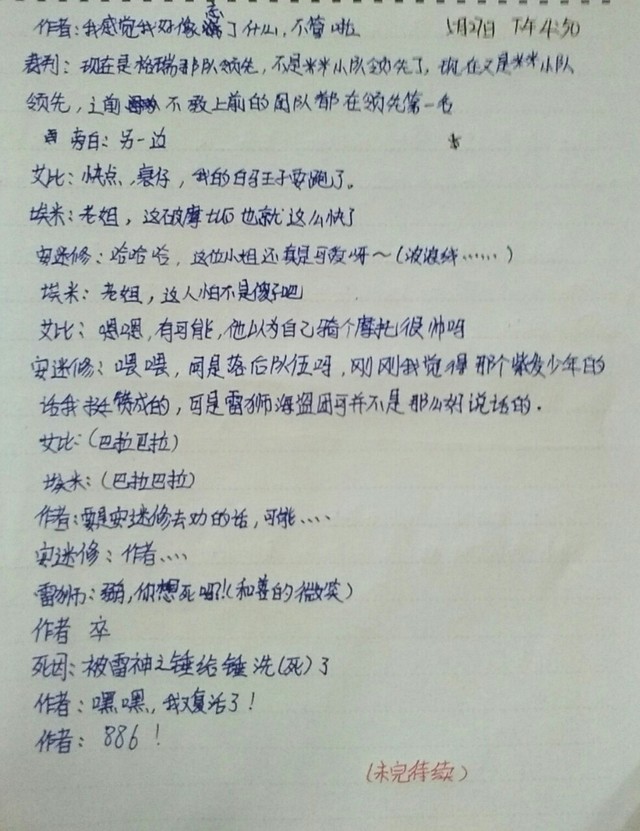 作者：我感觉我好像忘了什么，不管啦 5月27日 下午4:50
裁判：现在是格瑞那队领先，不是米米小队领先了，现在又是米米小队
领先，之前不敢上前的团队都在领先第一名
旁白：另一边
艾比：快点，衰仔，我的白马王子要跑了。
埃米：老姐，这破摩托也就这么快了
安迷修：哈哈哈，这位小姐还真是可爱呀～（波浪线……）
埃米：老姐，这人怕不是傻子吧
艾比：嗯嗯，有可能，他以为自己骑个摩托很帅吗
安迷修：喂喂，同是落后队伍吗，刚刚我觉得那个紫发少年的
话我挺赞成的，可是雷狮海盗团可并不是那么好说话的．
艾比：（巴拉巴拉）
埃米：（巴拉巴拉）
作者：要是安迷修去劝的话，可能….
安迷修：作者….
雷狮：你想死吗?!（和善的微笑）
作者 卒
死因：被雷神之锤给锤洗（死）了
作者：嘿嘿，我又复活了！
作者：886！
（未完待续）